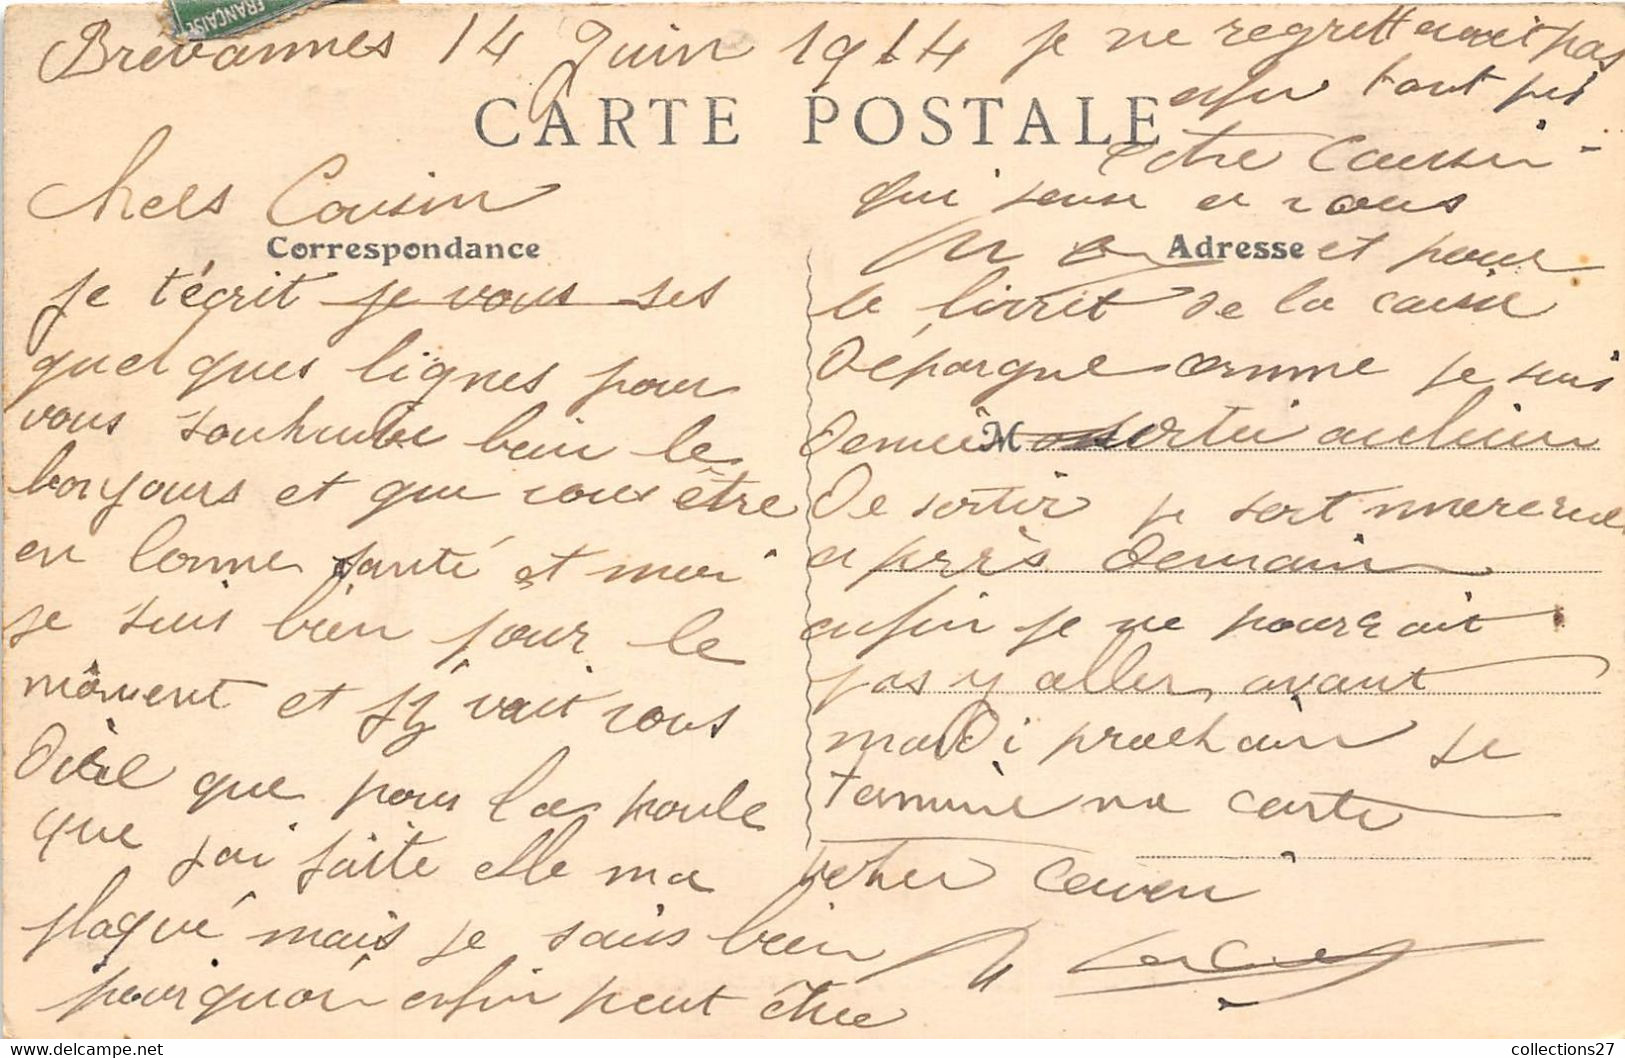 FRANÇAISE
Brévannes 14 Juin 1914
CARTE POSTALE
Chers Cousin
Correspondance
je t'écrit je vous ses
quelques lignes pour
vous souhaite bien le
bonjours et que vous être
en bonne santé et moi
je suis bien pour le
môment et j'y vait vous
dire que pour la poule
que j'ai faite elle ma
plaqué mais je sais bien
pourquoi enfin peut être
je ne regrett pas
enfin tant pis
votre Cousin
qui et vous
Adresse et pour
le livret de la caisse
dépargne comme je suis
M sortir au lieu
de sortir je sort mercredi
après demain
enfin je ne pourrait
pas y aller avant
mardi prochain je
termine ma carte
cher Cousin
collections27